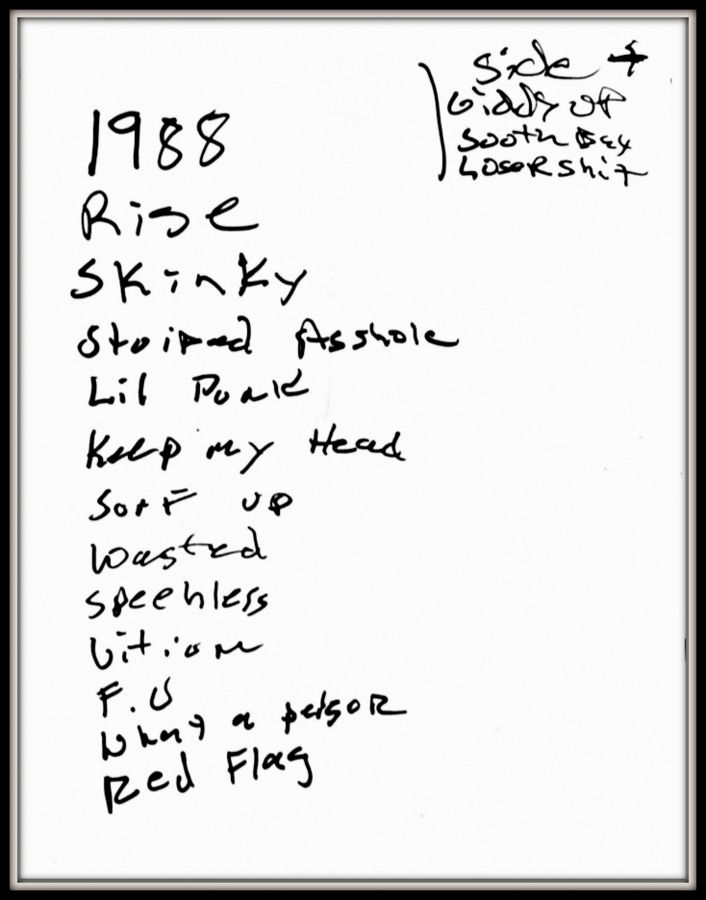 Side 4
Giddy UP
South Bay
LoserShit
1988
Rise
Skinky
Striped Asshole
Lil Punk
Keep my Head
Surf up
Wasted
Speehless
Vitiom
F.U
What a person
Red Flag